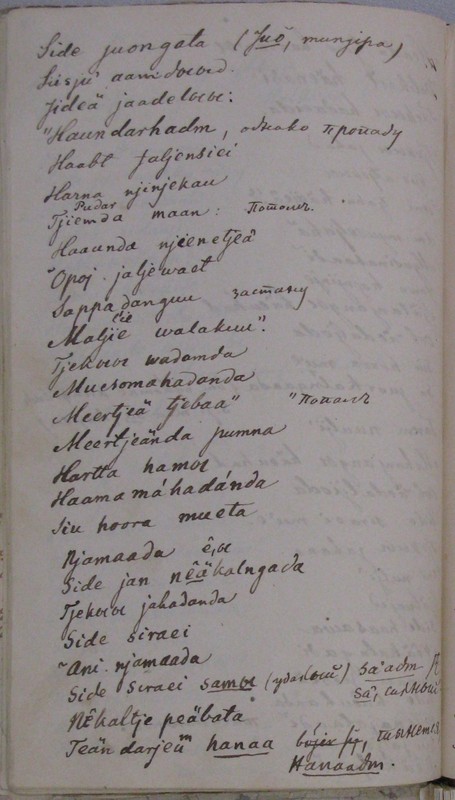 Side juongata (Juō, mungipa)
Siisju' aamdoeoeo.
Jideä jaadeloeoe:
"Haundarhadm, однако пропаду
Haabt faljensiei
Harna njinjekau
Pudar
Tjiemda maan: Потомъ.
Haaunda njienetjeä
"Opoj jaljewaet
Sappadanguu застану
Maljie walakuu".
Tjekoeoe wadamda
Muesomahadanda
Meertjeä tjebaa" "Попалъ
Meertjeända pumna
Hartta hamoe
Haama máhadánda
Siu hoora mueta
Njamaada ê,oe
Side jan nêäkalngada
Tjekoeoe jahadanda
Side siraei
"Ani njamaada
Side siraei samoe (удалой) sa'adm
sa',
Nêkaltje peäbata
Teän darjeum hanaa
Hanaadm.